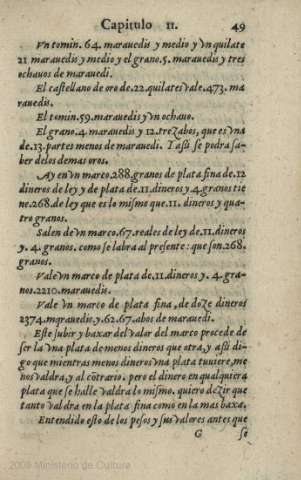 Capitulo 11. 49
Vn tomin. 64. marauedis y medio y vn quilate
21 marauedis y medio y el grano. 5. marauedis y tres
ochauos de marauedi.
El castellano de oro de .22. quilates vale .473. ma
rauedis.
El tomin. 59. marauedis y vn ochauo.
El grano. 4. marauedis y 12. trezabos, que es vna
de .13. partes menos de marauedi. Y assi se podra sa-
ber de los demas oros.
Ay en vn marco .288. granos de plata fina de .12
dineros de ley y de plata de .11. dineros y .4. granos tie
ne .268. de ley que es lo mismo que .11. dineros y qua-
tro granos.
Salen de vn marco .67. reales de ley de .11. dineros
y .4. granos. como se labra al presente: que son .268.
granos.
Vale vn marco de plata de .11. dineros y .4. gra-
nos. 2210. marauedis.
Vale vn marco de plata fina, de doze dineros
2374. marauedis, y .62. 67. abos de marauedi.
Este subir y baxar del valar del marco procede de
ser la vna plata de menos dineros que otra, y assi di-
go que mientras menos dineros vna plata tuuiere, me
nos valdra, y al cõtrario. pero el dinero en qualquiera
plata que se halle valdra lo mismo. quiero dezir que
tanto valdra en la plata fina como en la mas baxa.
Entendido esto de los pesos y sus valeres antes que
G se
2009 Ministerio de Cultura